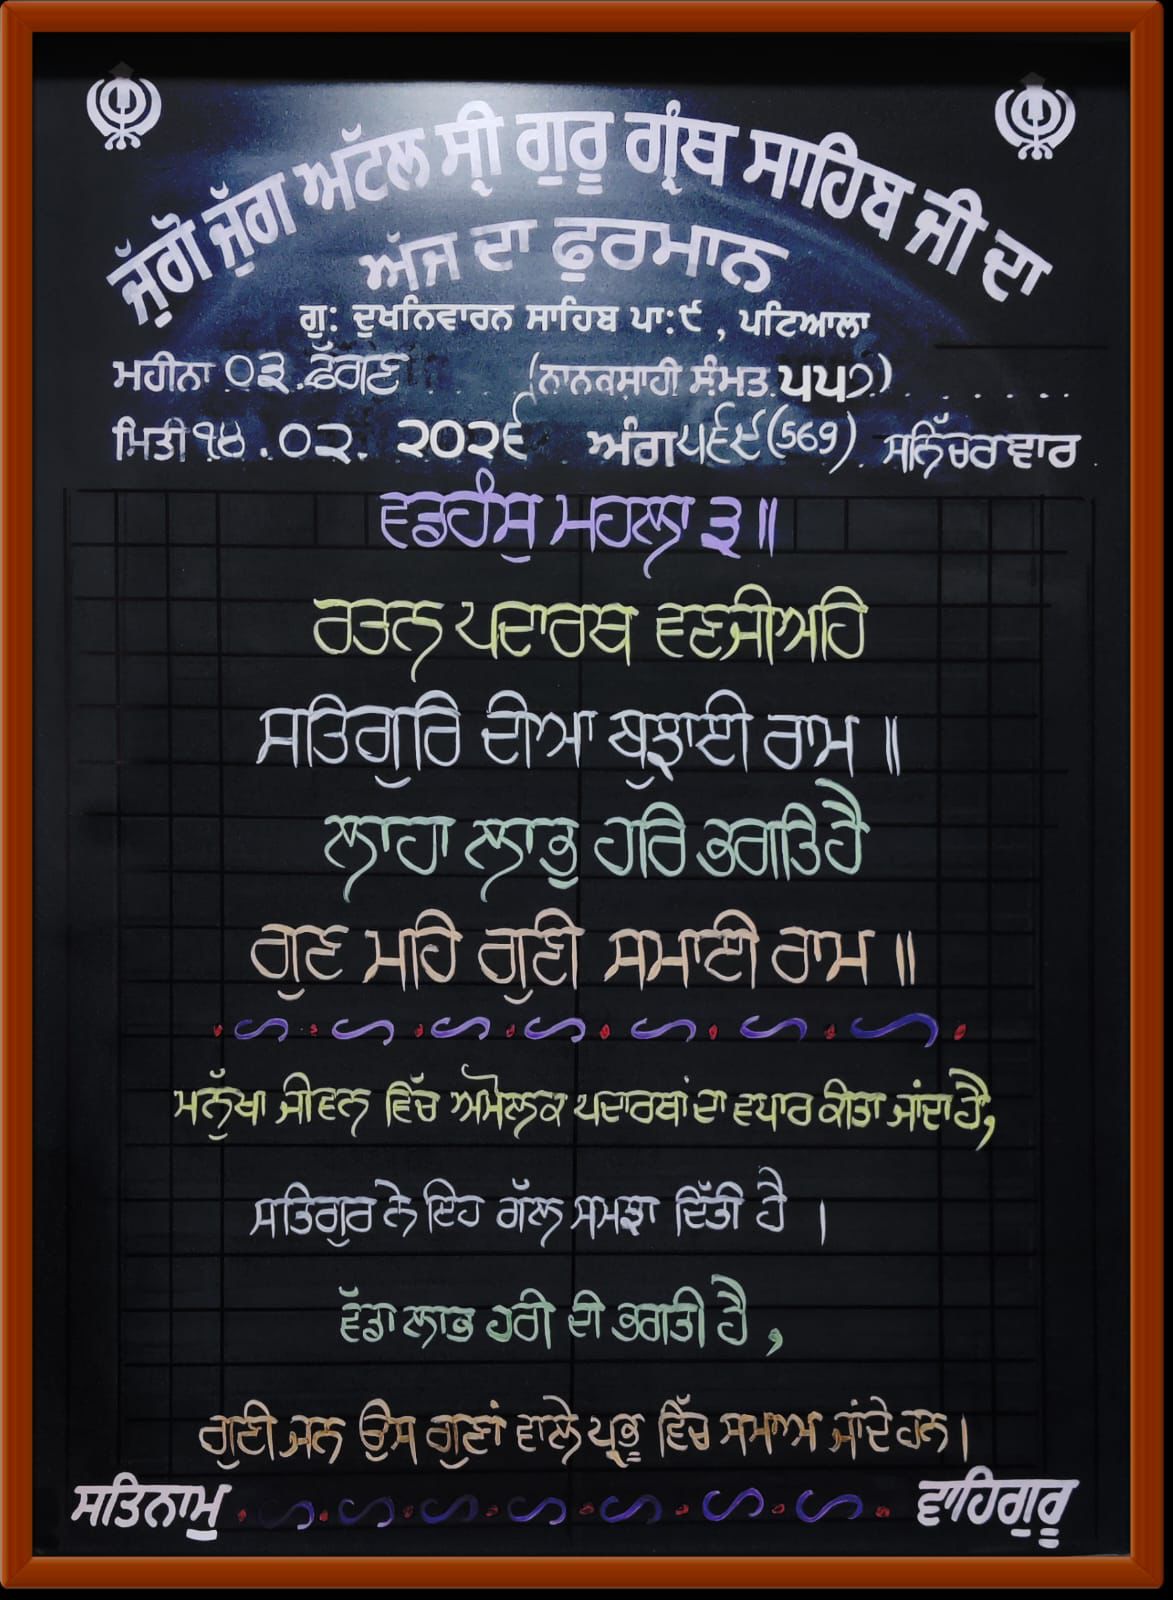 ਜੁੱਗੋ ਜੁੱਗ ਅਟੱਲ ਸ੍ਰੀ ਗੁਰੂ ਗ੍ਰੰਥ ਸਾਹਿਬ ਜੀ ਦਾ
ਅੱਜ ਦਾ ਫੁਰਮਾਨ
ਗੁ: ਦੁਖਨਿਵਾਰਨ ਸਾਹਿਬ ਪਾ:੯ , ਪਟਿਆਲਾ
ਮਹੀਨਾ ੦੩ ਫੱਗਣ (ਨਾਨਕਸਾਹੀ ਸੰਮਤ ੫੫੭)
ਮਿਤੀ ੧੪.੦੨.੨੦੨੬ ਅੰਗ ੫੬੯(569) ਸਨਿੱਚਰਵਾਰ
ਵਡਹੰਸੁ ਮਹਲਾ ੩॥
ਰਤਨ ਪਦਾਰਥ ਵਣਜੀਅਹਿ
ਸਤਿਗੁਰਿ ਦੀਆ ਬੁਝਾਈ ਰਾਮ ॥
ਲਾਹਾ ਲਾਭੁ ਹਰਿ ਭਗਤਿ ਹੈ
ਗੁਣ ਮਹਿ ਗੁਣੀ ਸਮਾਈ ਰਾਮ ॥
ਮਨੁੱਖਾ ਜੀਵਨ ਵਿੱਚ ਅਮੋਲਕ ਪਦਾਰਥਾਂ ਦਾ ਵਪਾਰ ਕੀਤਾ ਜਾਂਦਾ ਹੈ,
ਸਤਿਗੁਰ ਨੇ ਇਹ ਗੱਲ ਸਮਝਾ ਦਿੱਤੀ ਹੈ ।
ਵੱਡਾ ਲਾਭ ਹਰੀ ਦੀ ਭਗਤੀ ਹੈ ,
ਗੁਣੀ ਜਨ ਉਸ ਗੁਣਾਂ ਵਾਲੇ ਪ੍ਰਭੂ ਵਿੱਚ ਸਮਾਅ ਜਾਂਦੇ ਹਨ।
ਸਤਿਨਾਮੁ ਵਾਹਿਗੁਰੂ